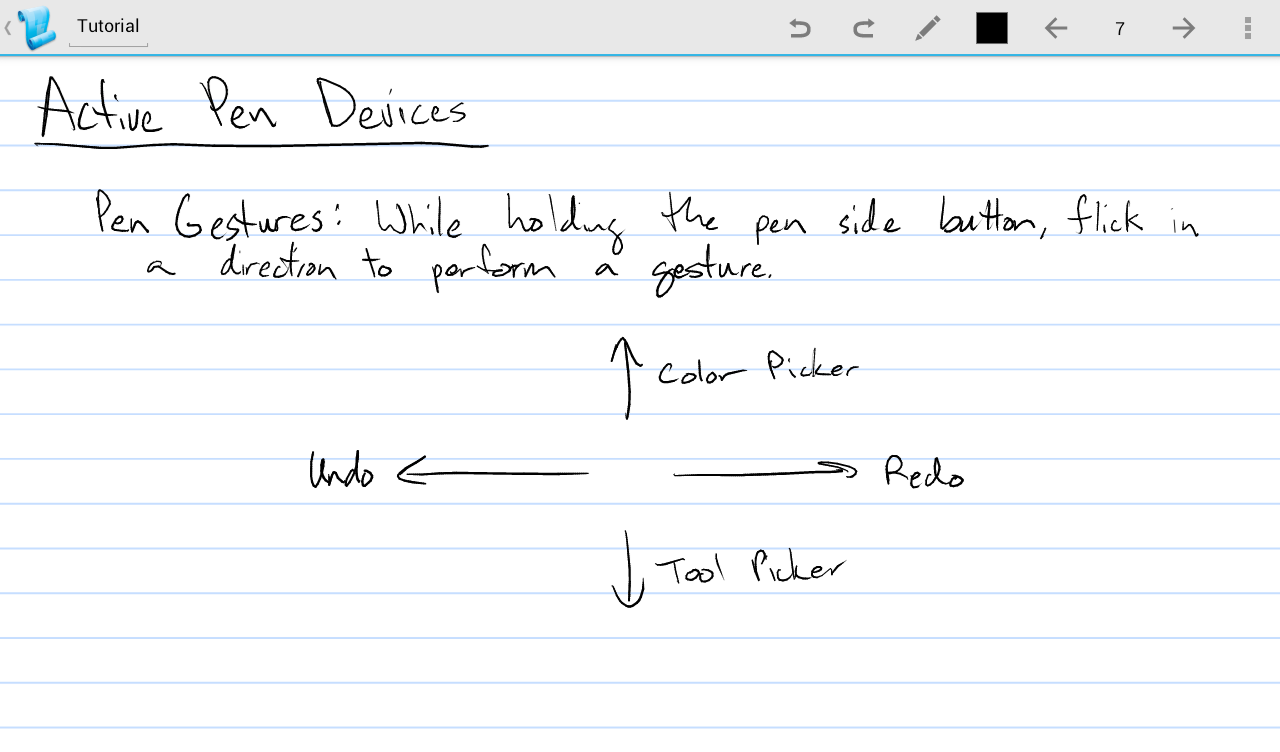 Tutorial
7
Active Pen Devices
Pen Gestures: While holding the pen side button, flick in
a direction to perform a gesture.
Color Picker
Undo
Redo
Tool Picker